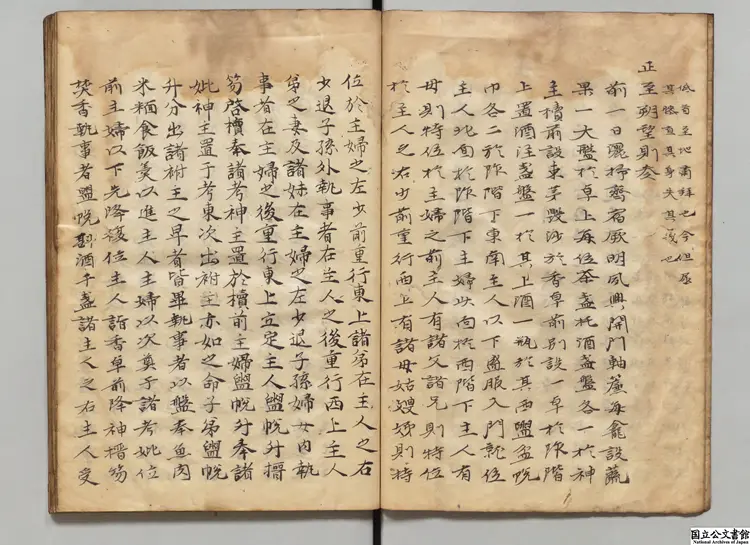 低首至地肅拜也今但屈
其膝直其身失其儀也
正至朔望則參
前一日灑掃齋宿厥明夙興開門軸簾每龕設蔬
果一大盤於卓上每位茶盞托酒盞盤各一於神
主櫝前設束茅聚沙於香卓前別設一卓於阼階
上置酒注盞盤一於其上酒一瓶於其西盥盆帨
巾各二於阼階下東南主人以下盛服入門就位
主人北面於阼階下主婦北面於西階下主人有
母則特位於主婦之前主人有諸父諸兄則特位
於主人之右少前重行西上有諸母姑嫂姊則特
位於主婦之左少前重行東上諸弟在主人之右
少退子孫外執事者在主人之後重行西上主人
弟之妻及諸妹在主婦之左少退子孫婦女內執
事者在主婦之後重行東上立定主人盥帨升搢
笏啓櫝奉諸考神主置於櫝前主婦盥帨升奉諸
妣神主置于考東次出祔主亦如之命子弟盥帨
升分出諸祔主之卑者皆畢執事者以盤奉魚肉
米麵食飯羹以進主人主婦以次奠于諸考妣位
前主婦以下先降復位主人詣香卓前降神搢笏
焚香執事者盥帨斟酒于盞詣主人之右主人受
国立公文書館
National Archives of Japan